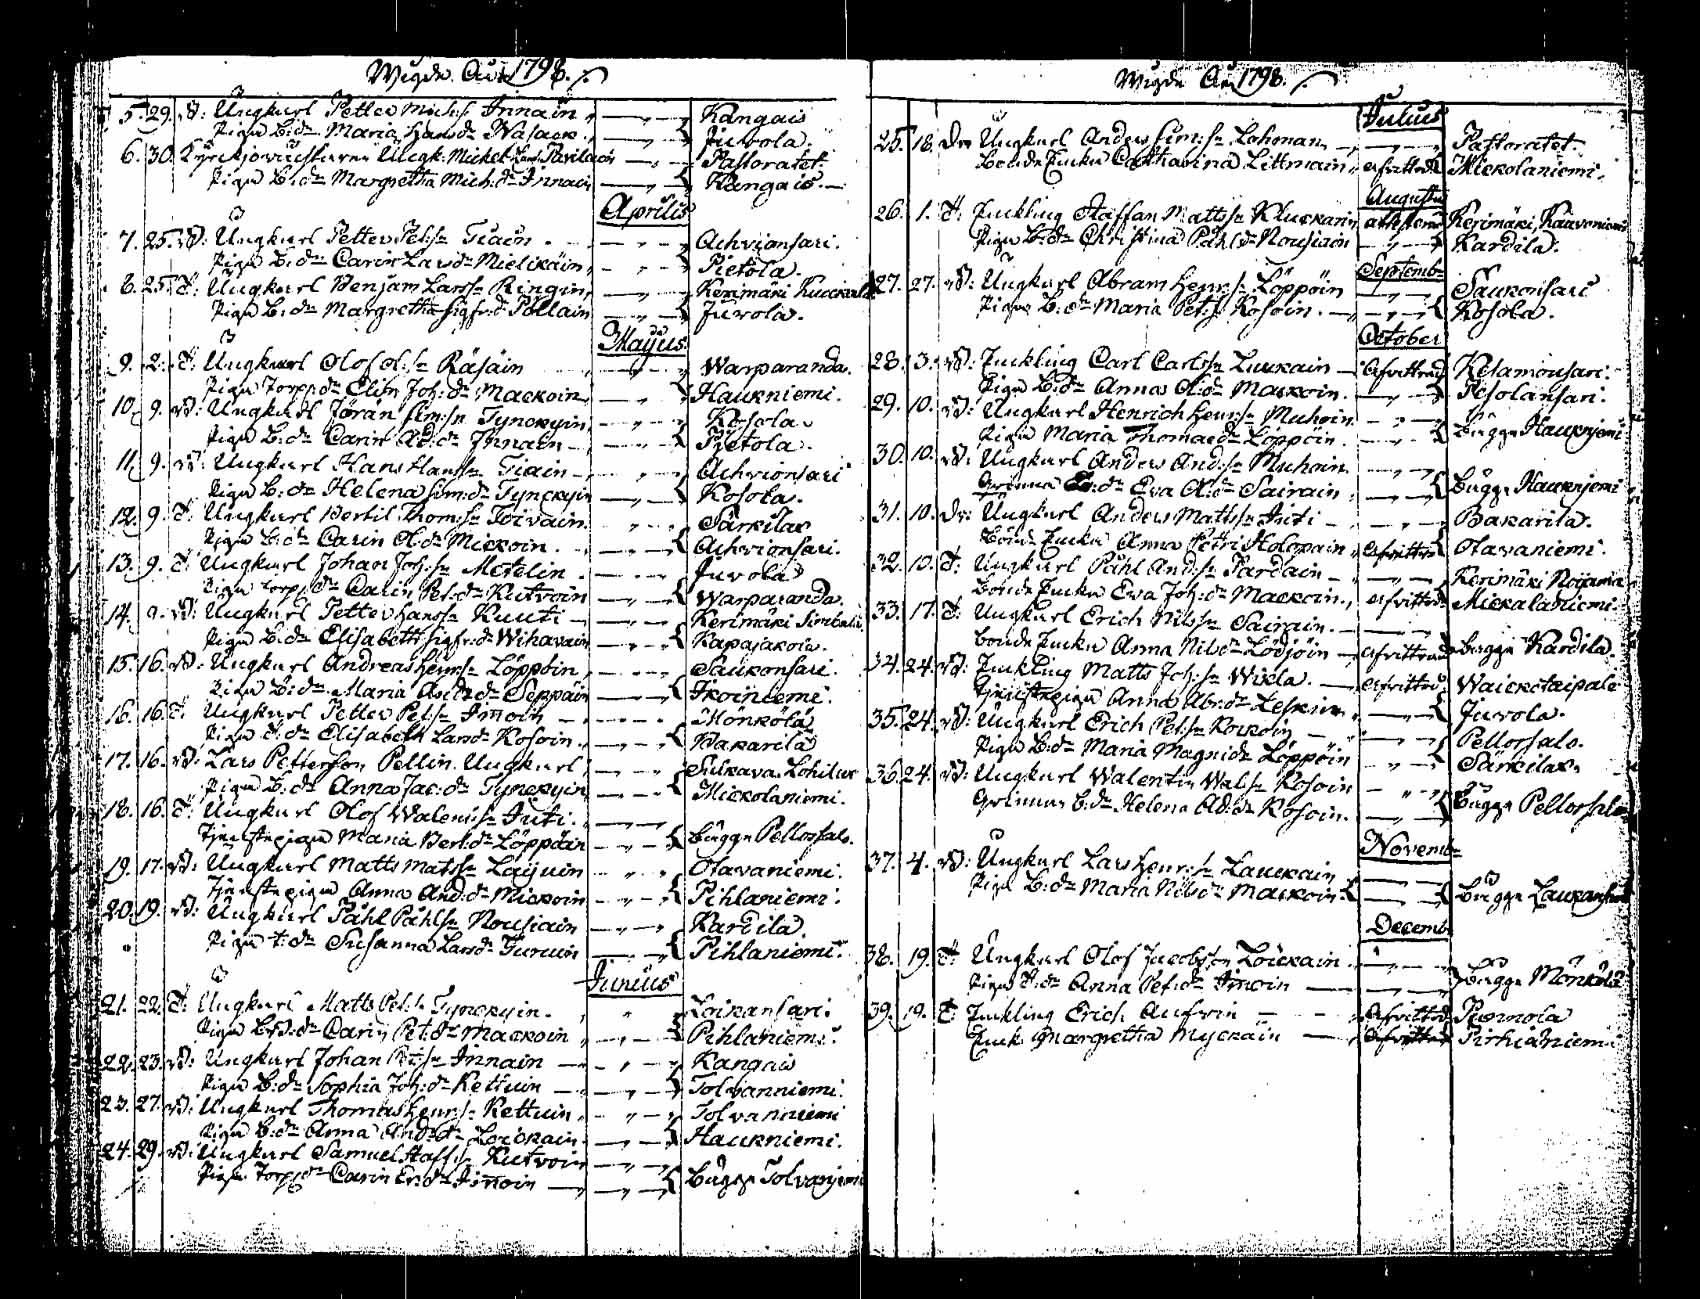 Wigde Año 1798.
5. 29. B: Ungkarl Petter Mich:s: Innain Kangais
Pigan B:dn Maria Hansdr Wäsack Juvola.
6. 30. Kyrckjowäcktaren Ungk: Michel Pastoratet
Pigan B:dn Margretha Mich:dr Innain Kangais.
Aprilis
7. 25. B: Ungkarl Petter Pet:s: Tiain Achvionsari.
Pigan B:dn Carin Larsdr Mielikäin Pietola.
8. 25. T: Ungkarl Benjam Larss: Ringin Kerimäki
Pigan B:dn Margretha Sigfr:dr Pöllain Juvola.
Majus
9. 2. T: Ungkarl Olof Ol:s: Räsäin Warparanda.
Pigan Torp:dr Elisn Joh:dr Mackoin Hauknιemi.
10. 9. B: Ungkarl Jöran Sim:sn Tynckyin Kosola
Pigan B:dn Carin Ad:dr Innain Pietola.
11. 9. B: Ungkarl Hans Hanss: Tiain Achvionsari
Pigan B:dn Helena Sim:dr Tynckyin Kosola.
12. 9. T: Ungkarl Bertil Thom:s: Toivain Särkilax
Pigan B:dn Carin Ol:dr Mickoin. Achvionsari.
13. 9. T: Ungkarl Johan Joh:s: Metelin Juvola
Pigan torp:dr Carin Pet:dr Kutvoin Warparanda.
14. 9. B: Ungkarl Petter Hanss: Kuuti Kerimäki
Pigan B:dn Elisabeth Sigfr:dr Wihavain Kapajakoia.
15. 16. B: Ungkarl Andreas Henr:s: Löppöin Saukonsari.
Pigan B:dn Maria Seppäin Ikoiniemi.
16. 16. T: Ungkarl Petter Pet:s: Imoin Mönkölä
Pigan B:dn Elisabeth Larsdr Kosoin Bakarila
17. 16. B: Lars Petterson Pellin. Ungkarl Sulkava Lohilax
Pigan B:dn Anna Jac:dr Tynckyin Mickolaniemi.
18. 16. T: Ungkarl Olof Walent:s: Inti Bägge Pellossalo.
Tjenstepigan Maria Bert:dr Löppöin
19. 17. B: Ungkarl Matts Matss: Laijuin Otavaniemi.
Tjenstepigan Anna And:dr Mickoin Pihlaniemi.
20. 19. B: Ungkarl Påhl Påhls: Nousiain Kardila.
Pigan T:dn Susanna Larsdr Turuin Pihlaniemi.
Junius
21. 22. T: Ungkarl Matts Pet:s: Tynckyin. Loikansari.
Pigan B:dn Carin Pet:dr Mackoin Pihlaniemi.
22. 23. B: Ungkarl Johan Pet:s: Innain Kangais
Pigan B:dn Sophia Joh:dr Kettuin Tolvanniemi.
23. 27. B: Ungkarl Thomas Henr:s: Kettuin Tolvanniemi
Pigan B:dn Anna And:dr Loickain Haukniemi.
24. 29. B: Ungkarl Samuel Staff:s: Kutvoin Bägge Tolvaniemi
Pigan Torp:dr Carin Er:dr Imoin
Wigde Año 1798.
Julius
25. 18. Dr Ungkarl Anders Sim:s: Lohman Pastoratet.
Bonde Enkan Catharina Littmain afvittrad Mickolaniemi.
Augusti
26. 1. T: Enkling Staffan Matts:s: Kluckarin Kerimäki,
Pigan B:dn Christina Påhlsdr Nousiain Kardila.
Septembr
27. 27. B: Ungkarl Abram Henr:s: Löppöin Saukonsari
Pigan B:dn Maria Pet:dr Kosoin. Kosola.
October
28. 3. B: Enkling Carl Carls:s: Luukain Afvittrad Kesamonsari.
Pigan B:dn Anna Ol:dr Mackoin. Pesolansari.
29. 10. B: Ungkarl Henrich Henr:s: Muhoin Bägge Haukniemi
Pigan Maria Thomædr Löppöin
30. 10. B: Ungkarl Anders And:s: Muhoin Bägge Haukniemi
Qvinnan Eva Ol:dr Sairain
31. 10. Dr: Ungkarl Anders Matts:s: Inti Bakarila.
Bonde Enkan Anna Petri Holopain Afvittrad Otavaniemi.
32. 10. T: Ungkarl Påhl And:s: Pardain Kerimäki
Bonde Enkan Eva Joh:dr Mackoin afvittrad Mickolaniemi.
33. 17. T: Ungkarl Erich Nils:s: Sairain
Bonde Enkan Anna Nilsdr Lodjöin afvittrad Bägge Kardila.
34. 24. B: Enkling Matts Joh:s: Wixla afvittrad Waickotaipale
Tjenstepigan Anna Abr:dr Leskin Juvola.
35. 24. B: Ungkarl Erich Pet:s: Kockoin Pellossalo.
Pigan B:dn Maria Magnidr Löppöin Särkilax.
36. 24. B: Ungkarl Walentin Wal:s: Kosoin Bägge Pellossalo
Qvinnan B:dn Helena Ad:dr Kosoin.
Novembr
37. 4. B: Ungkarl Lars Henr:s: Lauckain Bägge Laukansari
Pigan B:dn Maria Nilsdr Mackoin
Decembr
38. 19. T: Ungkarl Olof Jacobs:n Loickain Bägge Mönkölä
Pigan T:dn Anna Pet:dr Imoin
39. 19. T: Enkling Erich Aufvin Afvittrad Rumola
Enk: Margretha Myckäin Afvittrad Pirhiäniemi